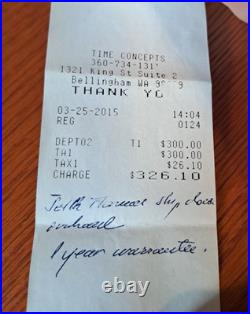 TIME CONCEPTS
360-734-131
1321 King St Suite 2
Bellingham WA
THANK YO
03-25-2015 14:04
REG 0124
DEPT02 T1 $300.00
TA1 $300.00
TAX1 $26.10
CHARGE $326.10
Seth Thomas ship clock
overhaul
1 year warrantee.